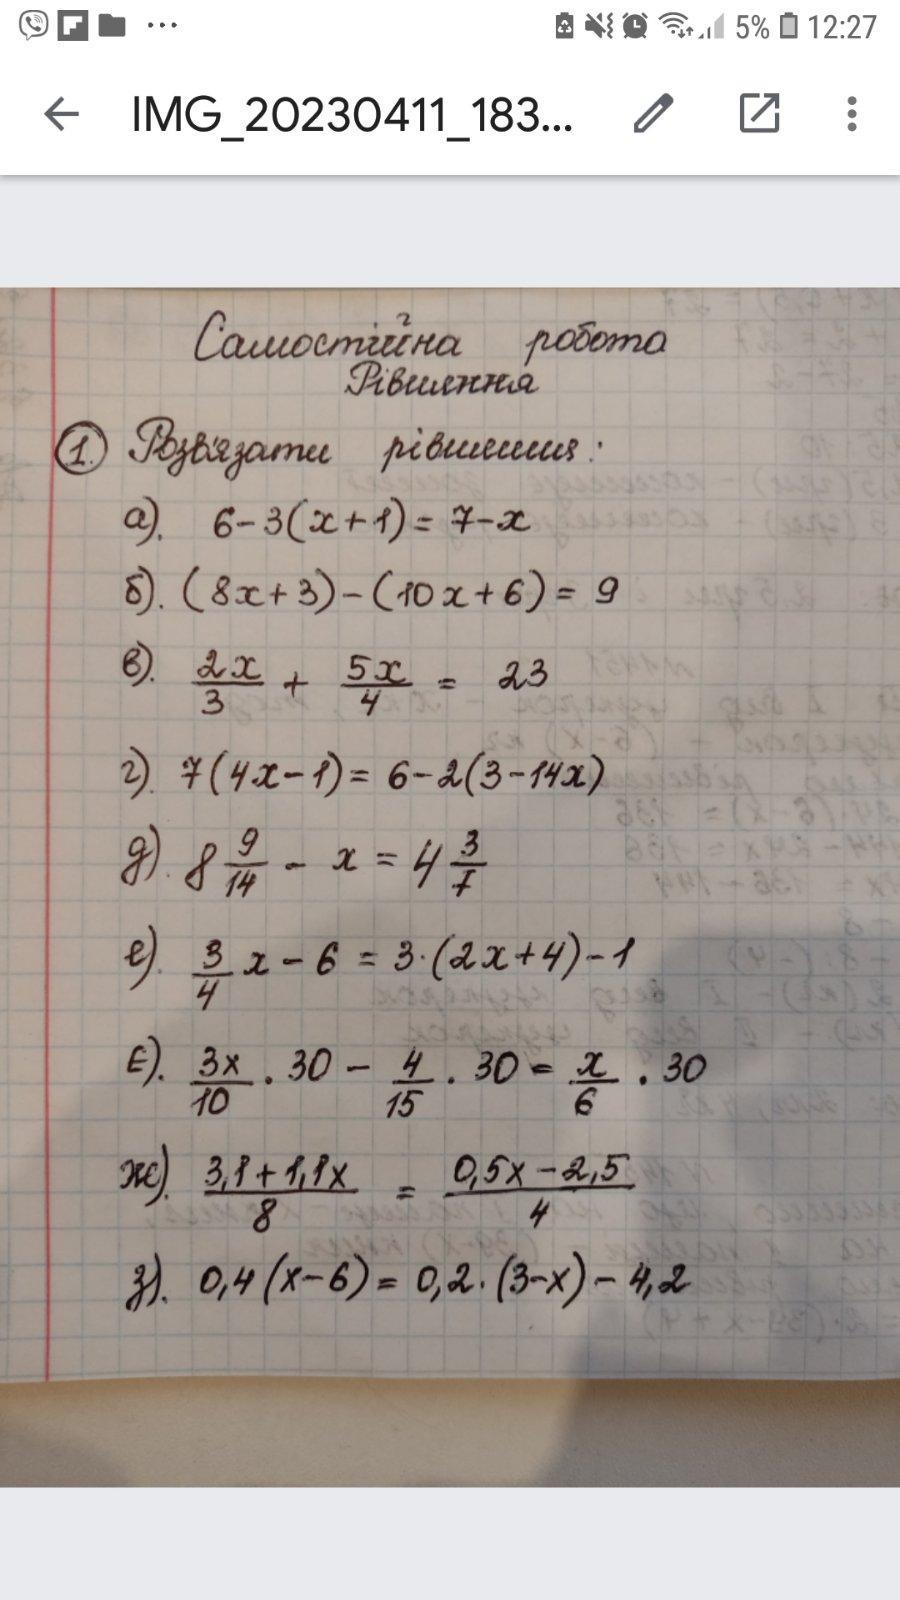 5% 12:27
IMG_20230411_183...
Самостійна робота
Рівняння
1. Розв'язати рівняння:
а). 6-3(x+1)=7-x
б). (8x+3)-(10x+6)=9
в). 2x/3 + 5x/4 = 23
г). 7(4x-1)=6-2(3-14x)
д). 8 9/14 - x = 4 3/7
е). 3/4 x - 6 = 3·(2x+4)-1
є). 3x/10 · 30 - 4/15 · 30 = x/6 · 30
ж). 3,1+1,1x/8 = 0,5x-2,5/4
з). 0,4(x-6)=0,2·(3-x)-4,2